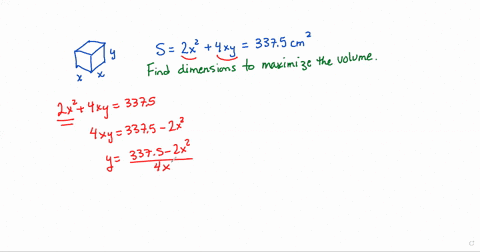 S = 2x² + 4xy = 337.5 cm²
Find dimensions to maximize the volume.
y
x x
2x² + 4xy = 337.5
4xy = 337.5 - 2x²
y = (337.5 - 2x²)/4x